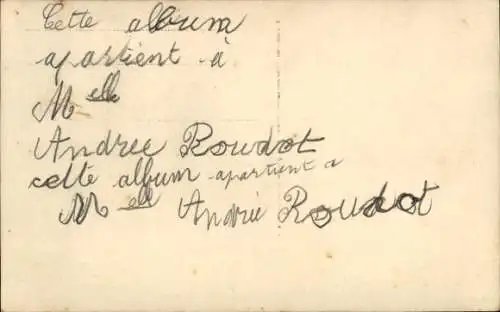 Cette album
apartient à
Melle
Andree Roudot
cette album apartient a
Mell Andrée Roudot